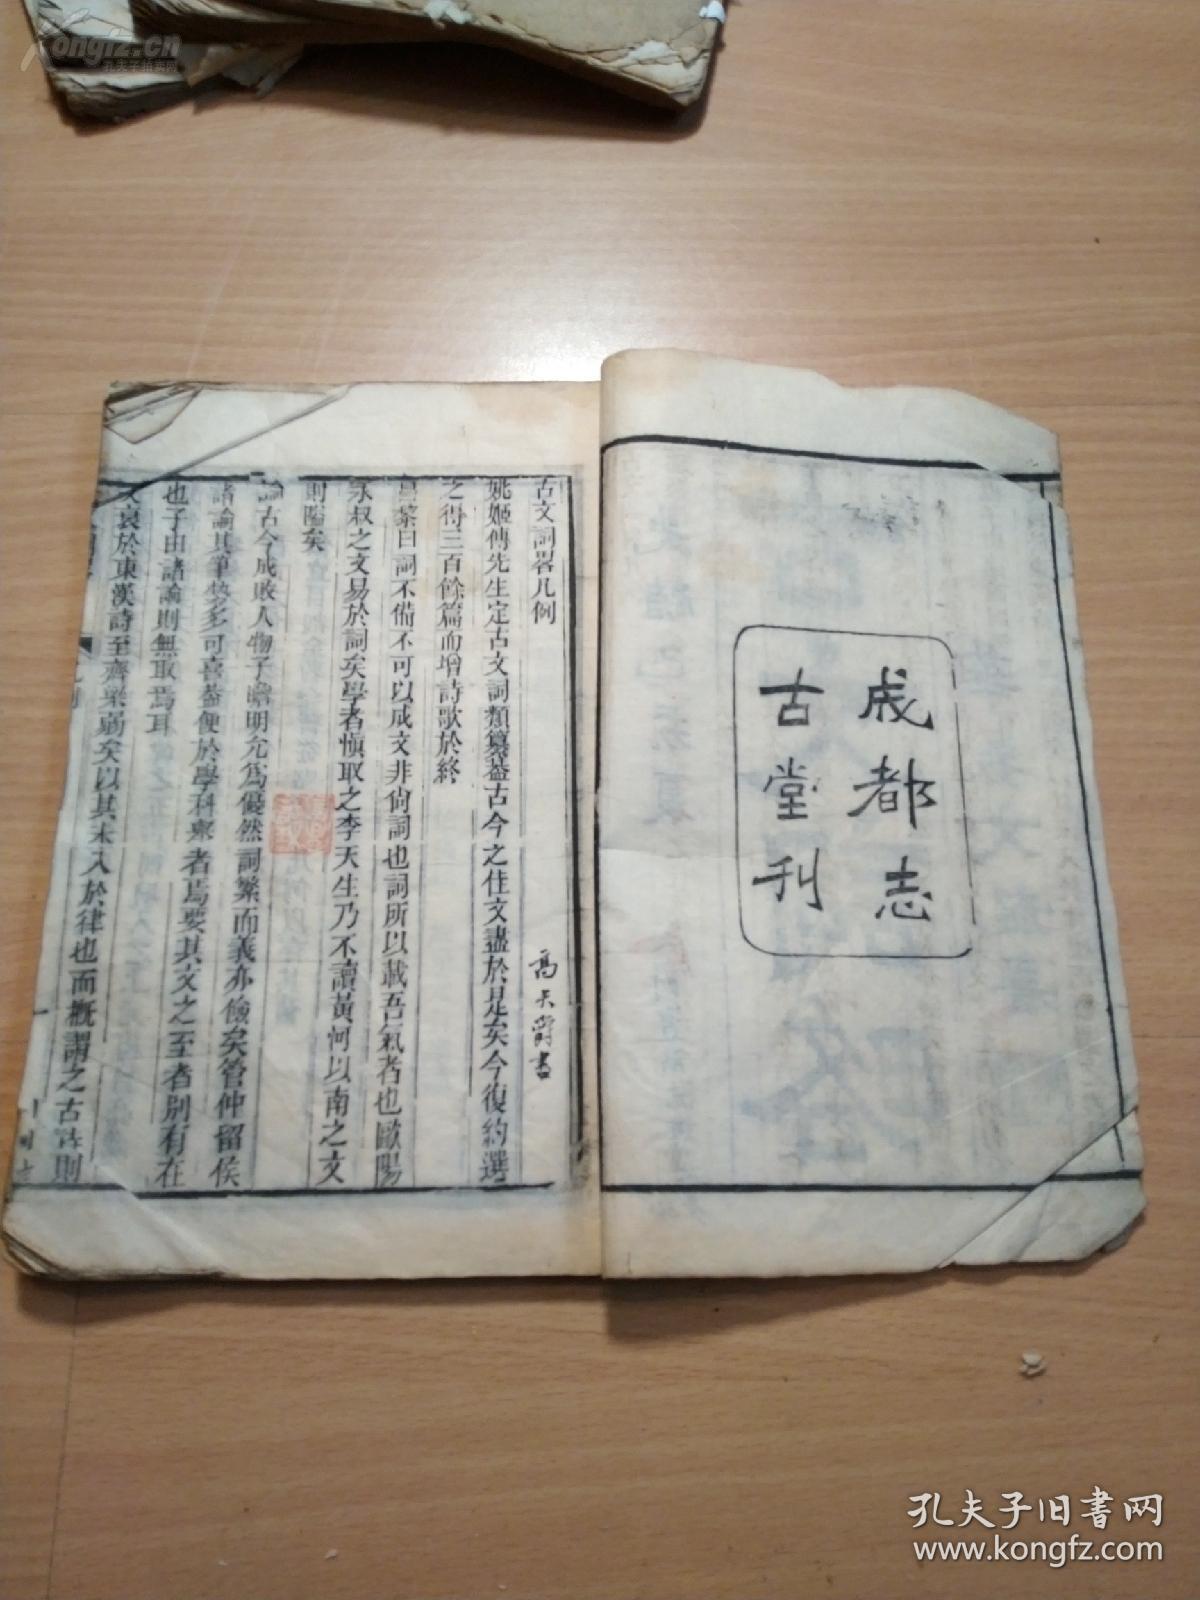 成都志
古堂刊
古文詞畧凡例
高天爵書
姚姬傳先生定古文詞類纂葢古今之佳文盡於是矣今復約選
之得三百餘篇而增詩歌於終
皇棻曰詞不備不可以成文非尙詞也詞所以載吾氣者也歐陽
永叔之文易於詞矣學者愼取之李天生乃不讀黃河以南之文
則隘矣
論古今成敗人物子瞻明允爲優然詞繁而義亦儉矣管仲留侯
諸論其筆勢多可喜葢便於學科舉者焉要其文之至者別有在
也子由諸論則無取焉耳
文衰於東漢詩至齊梁弱矣以其未入於律也而槪謂之古詩則
孔夫子旧书网
www.kongfz.com
Kongfz.cn
孔夫子拍卖网